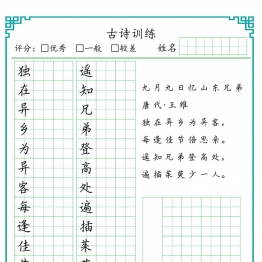 古诗训练
评分：□优秀 □一般 □较差 姓名
九月九日忆山东兄弟
唐代·王维
独在异乡为异客，
每逢佳节倍思亲。
遥知兄弟登高处，
遍插茱萸少一人。
独在异乡为异客每逢佳
遥知兄弟登高处遍插茱